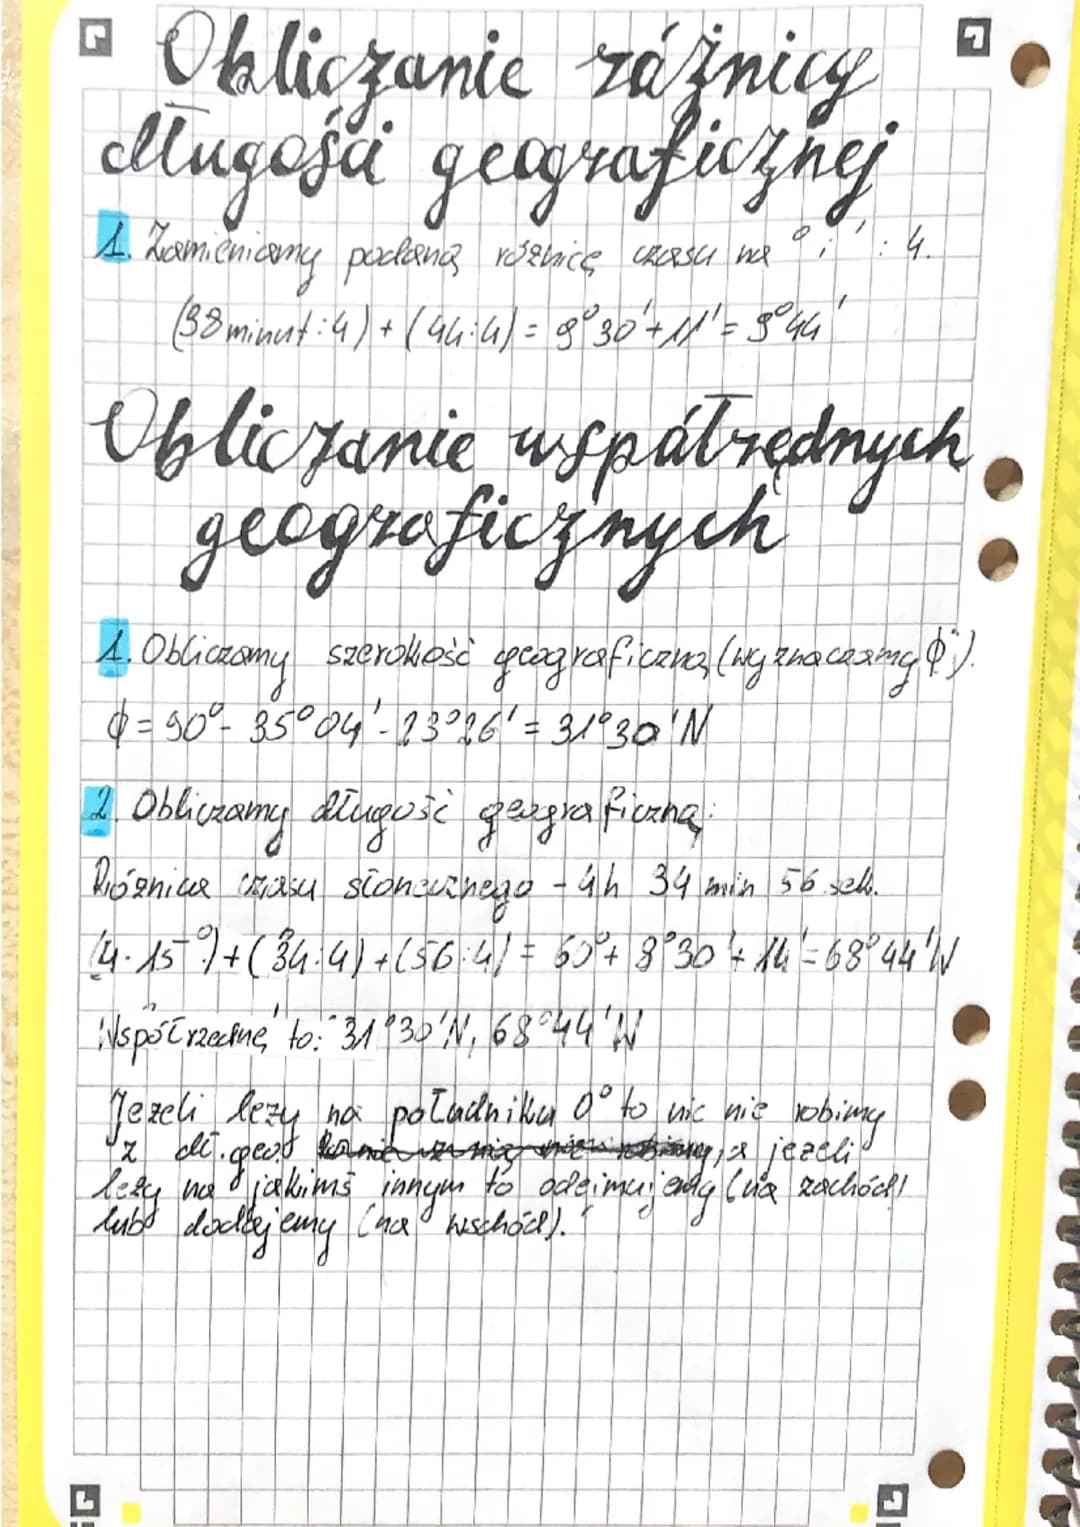 Obliczanie różnicy
długości geograficznej
1. Zamieniamy podaną różnicę czasu na ° i ' : 4.
(38 minut : 4) + (44 : 4) = 9°30' + 11' = 9°44'
Obliczanie współrzędnych
geograficznych
1. Obliczamy szerokość geograficzną (wyznaczamy ϕ).
ϕ = 90° - 35°04' - 23°26' = 31°30'N
2. Obliczamy długość geograficzną:
Różnica czasu słonecznego - 4h 34 min 56 sek.
(4 · 15°) + (34 : 4) + (56 : 4) = 60° + 8°30' + 14' = 68°44'W
Współrzędne to: 31°30'N, 68°44'W
Jeżeli leży na południku 0° to nic nie robimy
z dł. geog , a jeżeli
leży na jakimś innym to odejmujemy (na zachód)
lub dodajemy (na wschód).